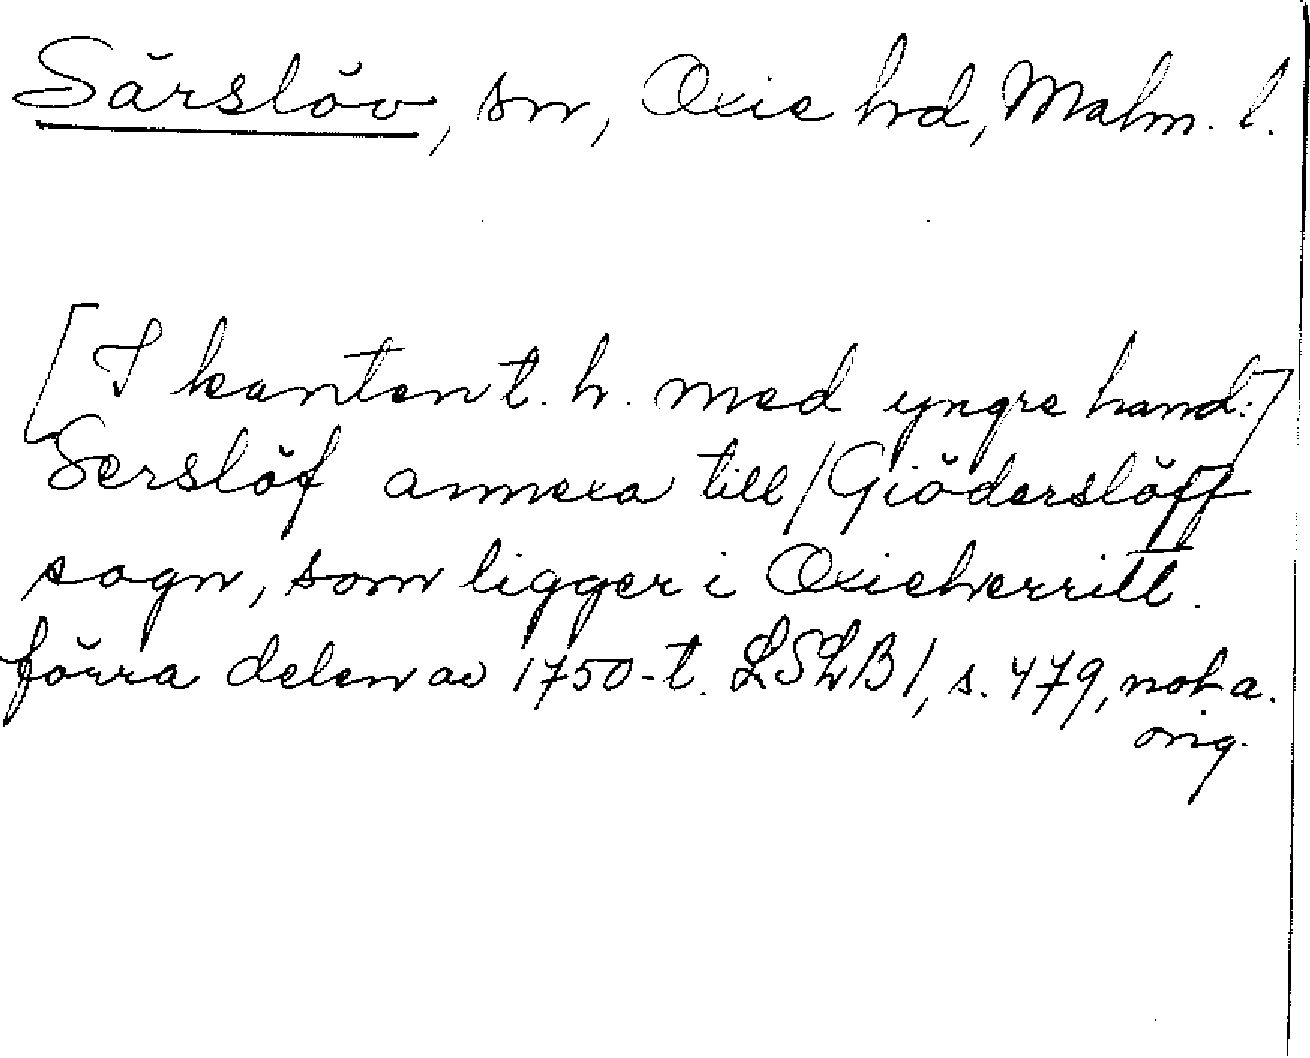 Särslöv, sn, Oxie hrd, Malm. l.
[I kanten t. h. med yngre hand:]
Serslöf annexa till/Giöderslöff
sogn, som ligger i Oxieherritt.
förra delen av 1750-t. LSLB1, s. 479, not a.
orig.